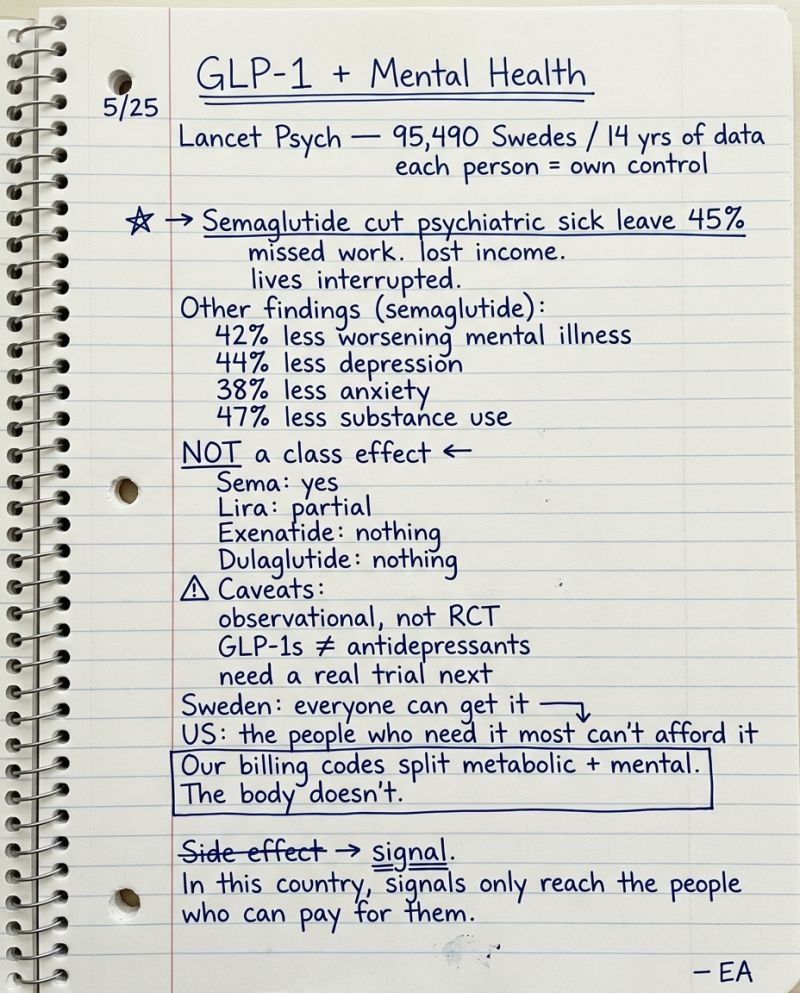 GLP-1 + Mental Health
5/25
Lancet Psych — 95,490 Swedes / 14 yrs of data
each person = own control
☆ → Semaglutide cut psychiatric sick leave 45%
missed work. lost income.
lives interrupted.
Other findings (semaglutide):
42% less worsening mental illness
44% less depression
38% less anxiety
47% less substance use
NOT a class effect ←
Sema: yes
Lira: partial
Exenatide: nothing
Dulaglutide: nothing
⚠ Caveats:
observational, not RCT
GLP-1s ≠ antidepressants
need a real trial next
Sweden: everyone can get it
US: the people who need it most can't afford it
Our billing codes split metabolic + mental.
The body doesn't.
Side effect → signal.
In this country, signals only reach the people
who can pay for them.
– EA